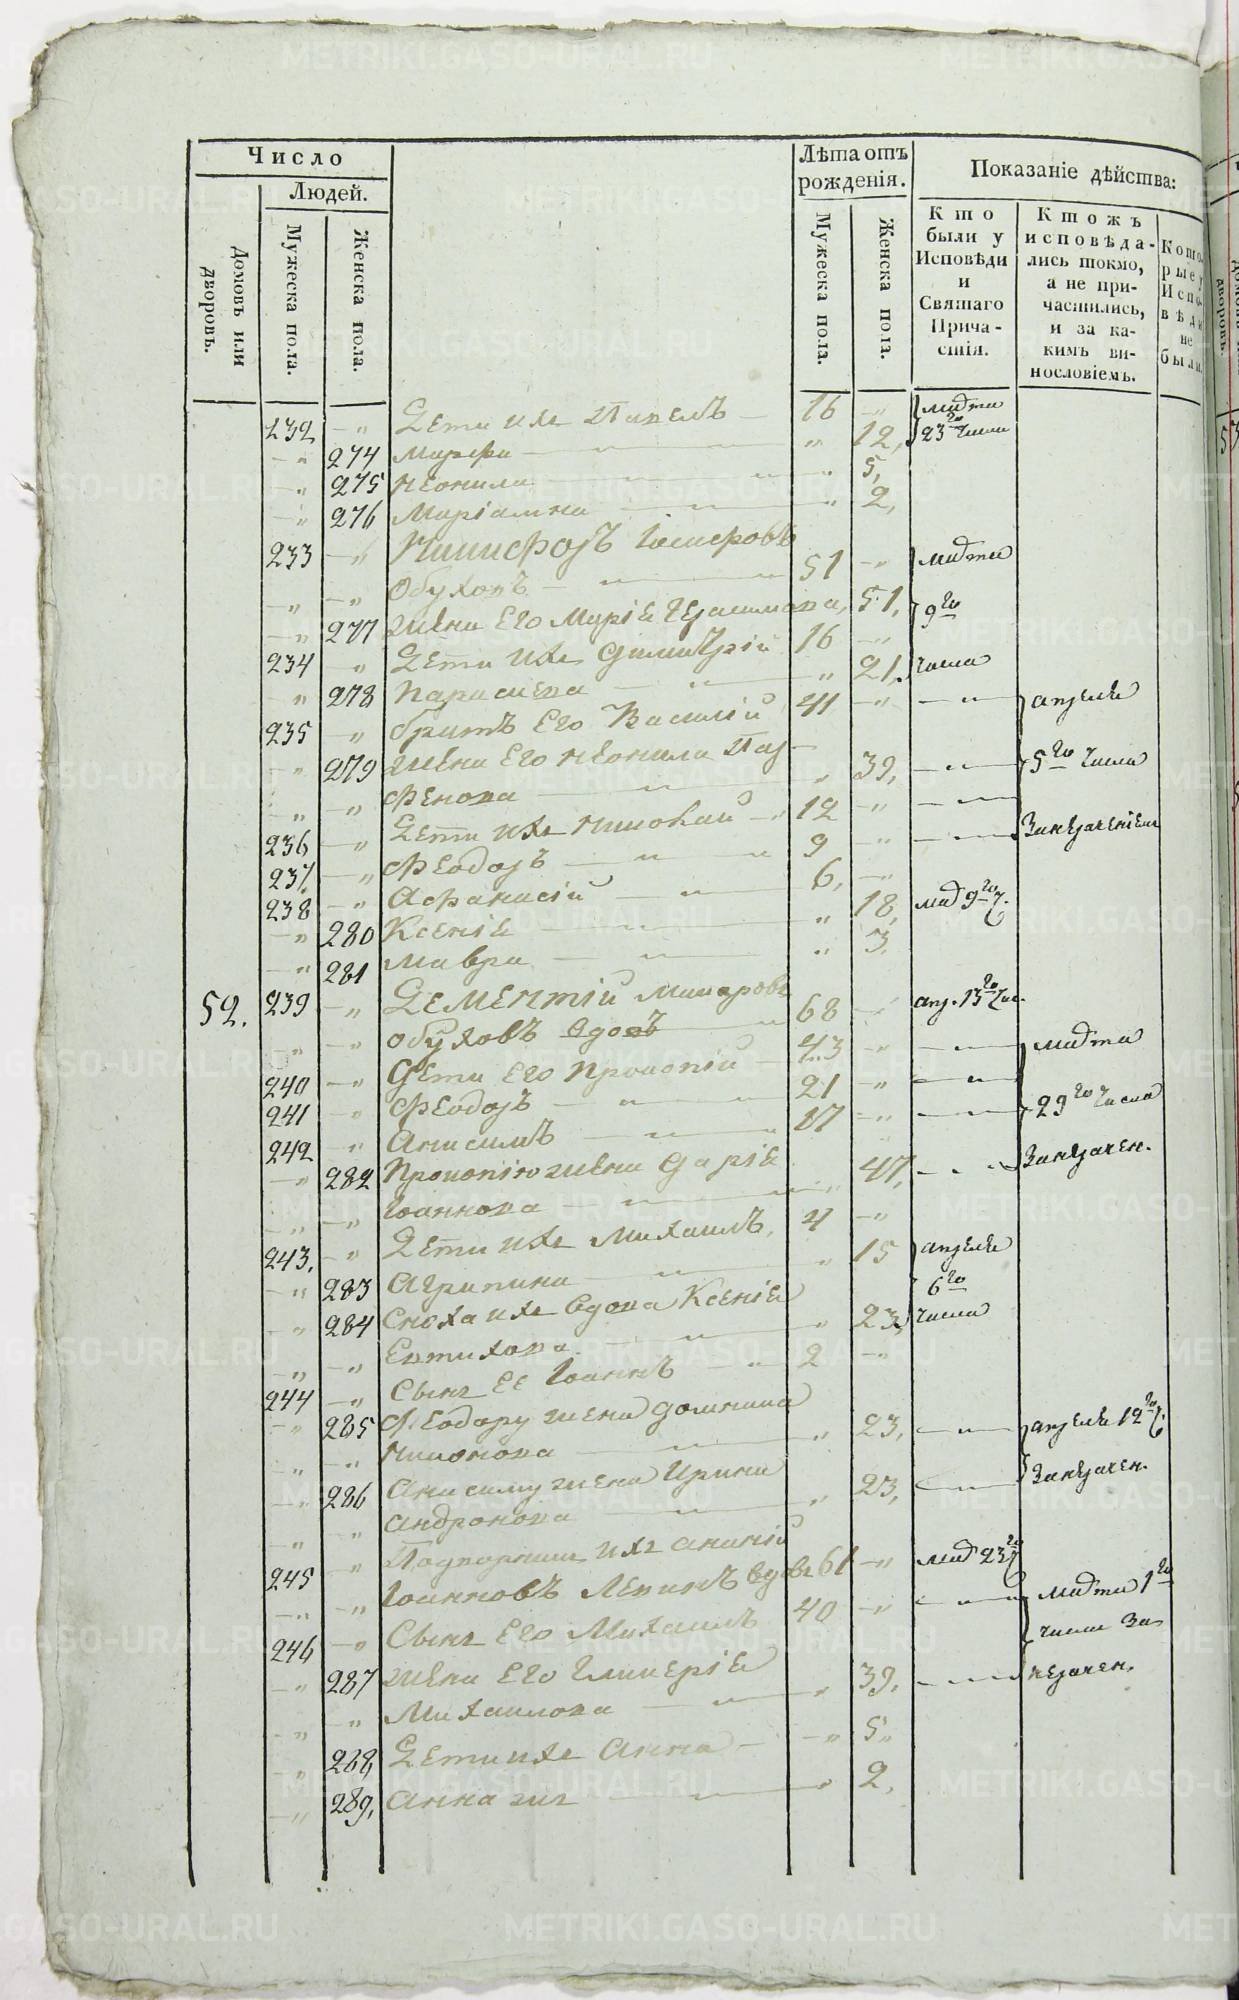 Число
Людей.
Домовъ или дворовъ.
Мужеска пола.
Женска пола.
Лѣта отъ рожденія.
Мужеска пола.
Женска пола.
Показаніе дѣйства:
Кто были у Исповѣди и Святаго Прича-стія.
Ктожъ исповѣда-лись токмо, а не при-частились, и за ка-кимъ ви-нословіемъ.
Кото-рые у Испо-вѣди не были.
232 — Дети ихъ Павелъ — 16 — марта
— 274 Марфа — 12, 23го числа
— 275 Неонила — 5,
— 276 Маріамна — 2,
233 — Никифоръ
— Обуховъ — 51 — марта
— 277 жена Его Марія Герасимова, 51, 9го
234 — Дети ихъ Димитрій 16 —
— 278 Параскева — 21, числа
235 — братъ Его Василій 41 — апреля
— 279 жена Его Неонила Пар-
— фенова — 39, 5го числа
236 — Дети ихъ Николай — 12 —
237. — Феодоръ — 9 — Занераченіем
238 — Афанасій — 6, —
— 280 Ксенія — 18, мар 9го ч.
— 281 Мавра — 3,
52. 239 — Дементій Макаровъ
— Обуховъ вдовъ — 68 — апр. 13го чис.
240 — Дети Его Прокопій — 43 — марта
241 — Феодоръ — 21 —
242 — Анисимъ — 17 — 29го числа
— 282 Прокопію жена Дарія
— Іоаннова — 47, Занерачен.
243. — Дети ихъ Михаилъ, 4 —
— 283 Агрипина — 15 апреля
— 284 Сноха ихъ вдова Ксенія 6го
— Евтихова — 23, числа
244 — Сынъ Ее Іоаннъ — 2 —
— 285 Феодору жена Домника
— Никонова — 23, апреля 12го ч.
— 286 Анисиму жена Ирина
— Андронова — 23, Занерачен.
245 — Подворникъ ихъ Ананій
— Іоанновъ вдовъ 61 — мар 23го
246 — Сынъ Его Михаилъ 40 — марта 1го
— 287 жена Его Гликерія числа За
— Михаилова — 39, нерачен.
— 288, Дети ихъ Анна — 5,
— 289, Анна жъ — 2,
METRIKI.GASO-URAL.RU